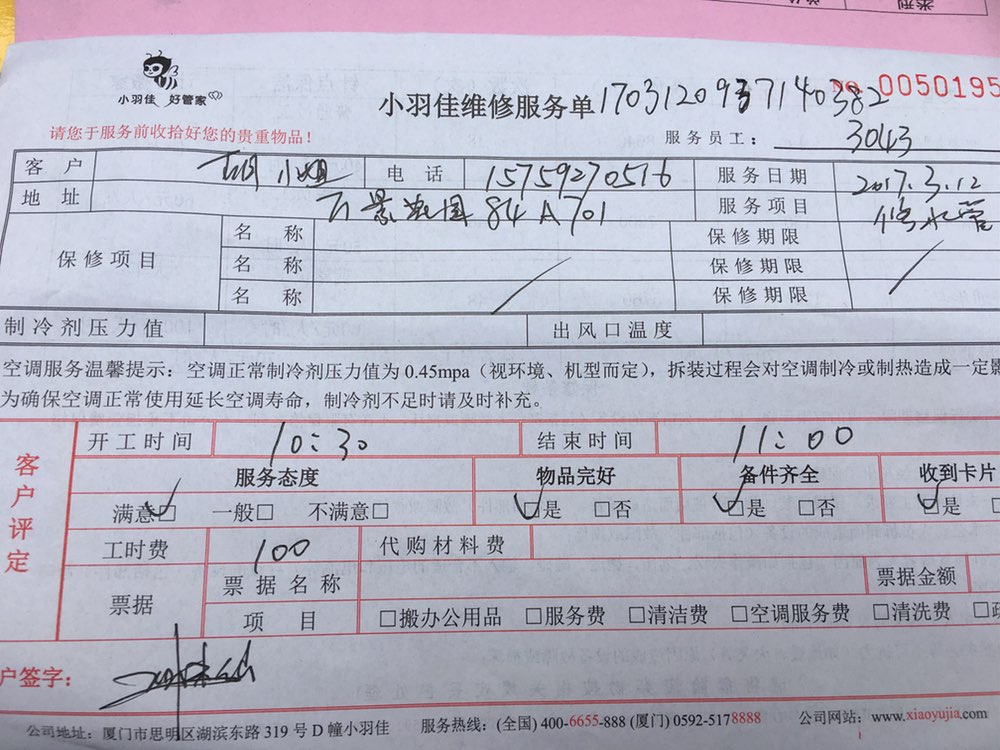 类型
小羽佳 好管家
小羽佳维修服务单 1703120937140382
No 0050195
请您于服务前收拾好您的贵重物品！
服务员工： 3043
客户 胡小姐 电话 15759270516 服务日期 2017.3.12
地址 万景公园 84A701 服务项目 修水管
保修项目 名称 保修期限
名称 保修期限
名称 保修期限
制冷剂压力值 出风口温度
空调服务温馨提示：空调正常制冷剂压力值为 0.45mpa（视环境、机型而定），拆装过程会对空调制冷或制热造成一定影
为确保空调正常使用延长空调寿命，制冷剂不足时请及时补充。
客户评定
开工时间 10:30 结束时间 11:00
服务态度 物品完好 备件齐全 收到卡片
满意□ 一般□ 不满意□ □是 □否 □是 □否 □是
工时费 100 代购材料费
票据 票据名称 票据金额
项目 □搬办公用品 □服务费 □清洁费 □空调服务费 □清洗费
户签字：
公司地址：厦门市思明区湖滨东路 319 号 D 幢小羽佳 服务热线：(全国) 400-6655-888 (厦门) 0592-5178888 公司网站：www.xiaoyujia.com